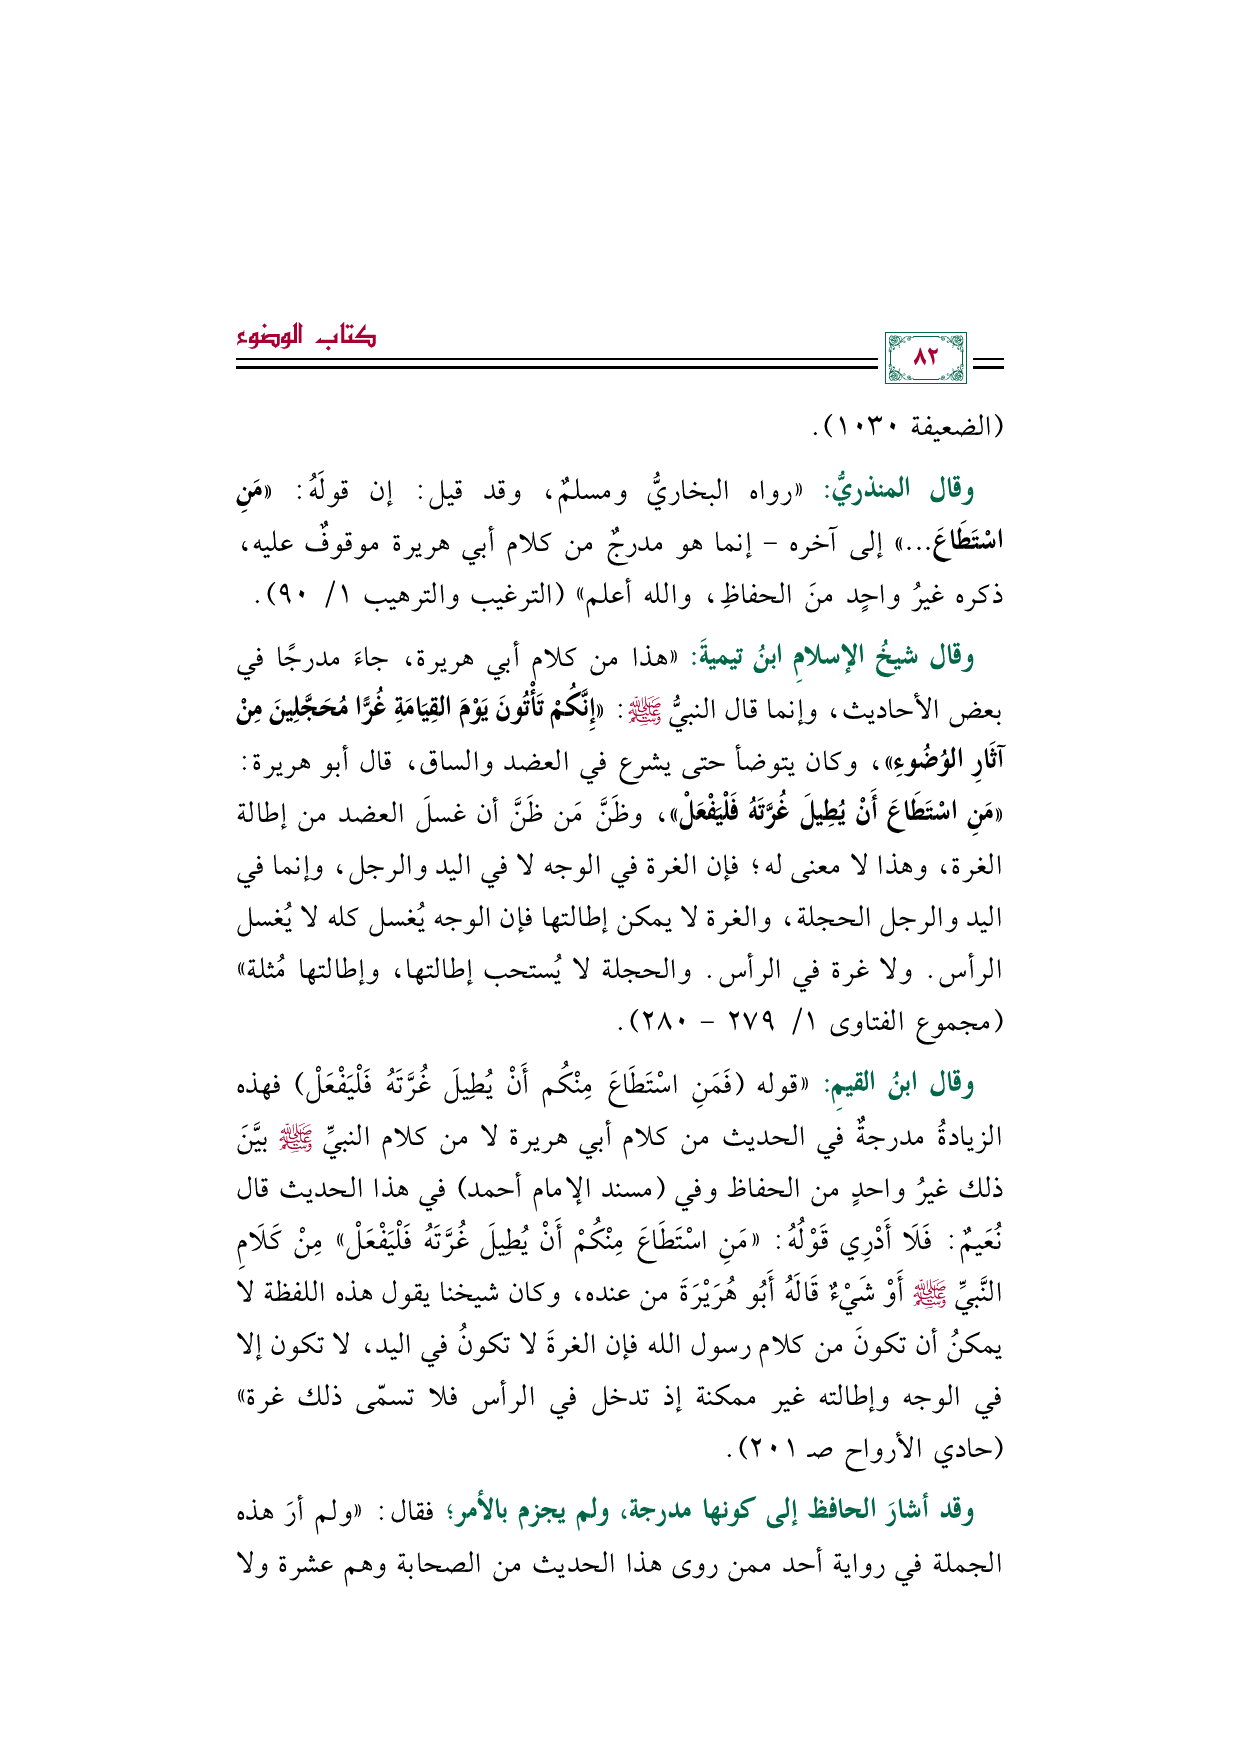 كتاب الوضوء
٨٢
(الضعيفة ١٠٣٠).
وقال المنذريُّ: «رواه البخاريُّ ومسلمٌ، وقد قيل: إن قولَهُ: «مَنِ
اسْتَطَاعَ...» إلى آخره - إنما هو مدرجٌ من كلام أبي هريرة موقوفٌ عليه،
ذكره غيرُ واحٍد منَ الحفاظِ، والله أعلم» (الترغيب والترهيب ١/ ٩٠).
وقال شيخُ الإسلامِ ابنُ تيميةَ: «هذا من كلام أبي هريرة، جاءَ مدرجًا في
بعض الأحاديث، وإنما قال النبيُّ ﷺ: «إِنَّكُمْ تَأْتُونَ يَوْمَ القِيَامَةِ غُرًّا مُحَجَّلِينَ مِنْ
آثَارِ الوُضُوءِ»، وكان يتوضأ حتى يشرع في العضد والساق، قال أبو هريرة:
«مَنِ اسْتَطَاعَ أَنْ يُطِيلَ غُرَّتَهُ فَلْيَفْعَلْ»، وظَنَّ مَن ظَنَّ أن غسلَ العضد من إطالة
الغرة، وهذا لا معنى له؛ فإن الغرة في الوجه لا في اليد والرجل، وإنما في
اليد والرجل الحجلة، والغرة لا يمكن إطالتها فإن الوجه يُغسل كله لا يُغسل
الرأس. ولا غرة في الرأس. والحجلة لا يُستحب إطالتها، وإطالتها مُثلة»
(مجموع الفتاوى ١/ ٢٧٩ - ٢٨٠).
وقال ابنُ القيمِ: «قوله (فَمَنِ اسْتَطَاعَ مِنْكُم أَنْ يُطِيلَ غُرَّتَهُ فَلْيَفْعَلْ) فهذه
الزيادةُ مدرجةٌ في الحديث من كلام أبي هريرة لا من كلام النبيِّ ﷺ بيَّنَ
ذلك غيرُ واحدٍ من الحفاظ وفي (مسند الإمام أحمد) في هذا الحديث قال
نُعَيمٌ: فَلَا أَدْرِي قَوْلُهُ: «مَنِ اسْتَطَاعَ مِنْكُمْ أَنْ يُطِيلَ غُرَّتَهُ فَلْيَفْعَلْ» مِنْ كَلَامِ
النَّبيِّ ﷺ أَوْ شَيْءٌ قَالَهُ أَبُو هُرَيْرَةَ من عنده، وكان شيخنا يقول هذه اللفظة لا
يمكنُ أن تكونَ من كلام رسول الله فإن الغرةَ لا تكونُ في اليد، لا تكون إلا
في الوجه وإطالته غير ممكنة إذ تدخل في الرأس فلا تسمّى ذلك غرة»
(حادي الأرواح صـ ٢٠١).
وقد أشارَ الحافظ إلى كونها مدرجة، ولم يجزم بالأمر؛ فقال: «ولم أرَ هذه
الجملة في رواية أحد ممن روى هذا الحديث من الصحابة وهم عشرة ولا